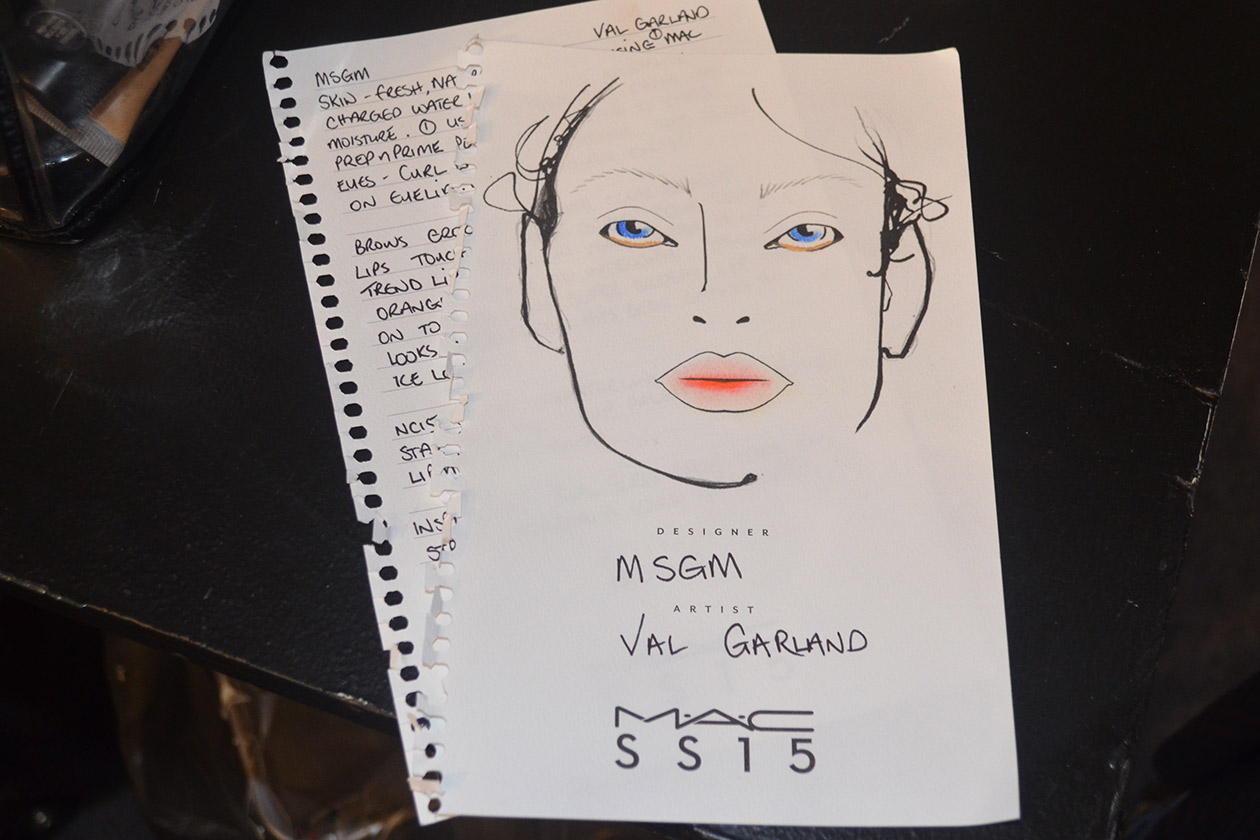 VAL GARLAND
MAC
MSGM
SKIN - FRESH, NA
CHARGED WATER
MOISTURE. ① US
PREP N PRIME
EYES - CURL
ON EYELI
BROWS GRO
LIPS TOUC
TREND LI
ORANG
ON TO
LOOKS
ICE
NC15
STA
LIP
INS
DESIGNER
MSGM
ARTIST
VAL GARLAND
M·A·C
SS15